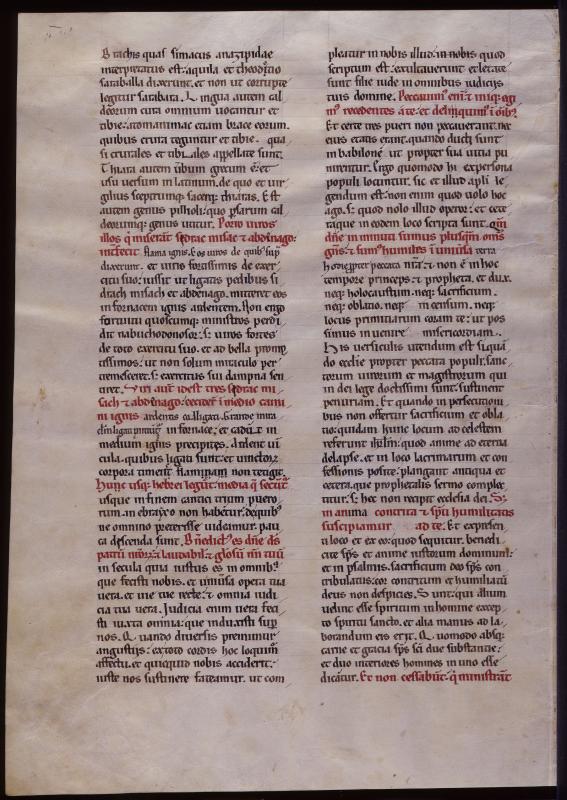 Brachis quas simacus anaxiridas
interpretatus est: aquila et theodotio
saraballa dixerunt. et non ut corrupte
legitur sarabara. Lingua autem cal
deorum cura omnium uocantur et
tibie.
quibus crura teguntur et tibie. quasi
si crurales et tibiales appellate sunt.
Thiara autem uerbum grecum est et
usu uersum in latinum. de quo et uir
gilius
autem genus pilleoli: quo persarum cal
deorumque genus utitur. Porro uiros
illos qui miserant sedrac misac et abdenago:
interfecit flama ignis. Eos uiros de quibus supra
dixerunt. et uiris fortissimis de exer
citu suo: iussit ut ligatis pedibus si
drach misach et abdenago. mitteret eos
in fornacem ignis ardentem. Non ergo
fortuitu quoscumque ministros perdi
dit nabuchodonosor. sed uiros fortes
de toto exercitu suo. et ad bella promp
tissimos: ut non solum miraculo per
timesceret. sed exercitus sui dampna sen
tiret. Viri autem idest tres sedrac mi
sach et abdenago: ceciderunt in medio cami
ni ignis ardentis colligati. Grande mira
in fornace: et cadunt in
medium ignis precipites. Ardent uin
cula. quibus ligati sunt: et uinctorum
corpora timens flamma non tetigit.
Hunc usque hebrei legunt: media que secuntur
usque in finem cantici trium puero
rum. in ebrayco non habetur. de quibus
ne omnino preterisse uideamur. pau
ca dicenda sunt. Benedictus es domine deus
patrum nostrorum et laudabile et gloriosum nomen tuum
in secula quia iustus es in omnibus
que fecisti nobis. et uniuersa opera tua
uera. et uie tue recte: et omnia iudi
cia tua uera. Iudicia enim uera feci
sti iuxta omnia: que induxisti super
nos. Quando diuersis premimur
angustiis: ex toto cordis hoc loquimur
affectu. et quicquid nobis acciderit:
iuste nos sustinere fateamur. ut com
pleatur in nobis illud in nobis quod
scriptum est: exultauerunt et letate
sunt filie iude in omnibus iudiciis
tuis domine. Peccauimus enim et inique egi
mus recedentes a te. et deliquimus in omnibus.
Et certe tres pueri non peccauerant. nec
eius etatis erant. quando ducti sunt
in babilonem ut propter sua uitia pu
nirentur. Ergo quomodo hi ex persona
populi locuntur. sic et illud apostoli le
gendum est: non enim quod uolo hoc
ago. sed quod nolo illud operor: et cete
raque in eodem loco scripta sunt. Quia
domine inminuti sumus plusquam omnes
gentes: et sumus humiles in uniuersa terra
hodie propter peccata nostra: et non est in hoc
tempore princeps et propheta. et dux.
neque holocaustum. neque sacrificium.
neque oblatio. neque incensum. neque
locus primitiarum coram te: ut pos
simus inuenire misericordiam.
His uersiculis utendum est si quan
do ecclesie propter peccata populi. sanc
torum uirorum et magistrorum qui
in dei lege doctissimi sunt: sustinent
penuriam. Et quando in persecutioni
bus non offertur sacrificium et obla
tio: quidam hunc locum ad celestem
referunt ierusalem: quod anime ad eterna
delapse. et in loco lacrimarum et con
fessionis posite: plangant antiqua et
cetera. que prophetalis sermo complec
titur. sed hec non recipit ecclesia dei. Sed
in anima contrita et spiritu humilitatis
suscipiamur ad te. Et ex presen
ti loco et ex eo: quod sequitur. benedi
cite spiritus et anime iustorum dominum:
et in psalmis. sacrificium deo spiritus con
tribulatus: cor contritum et humiliatum
deus non despicies. Sunt: qui alium
uidunt esse spiritum in homine excep
to spiritu sancto. et alia manus ad la
borandum eis erit. Quomodo absque
carne et gracia spiritus sed due substantie:
et duo interiores homines in uno esse
dicantur. Et non cessabunt: qui ministrant